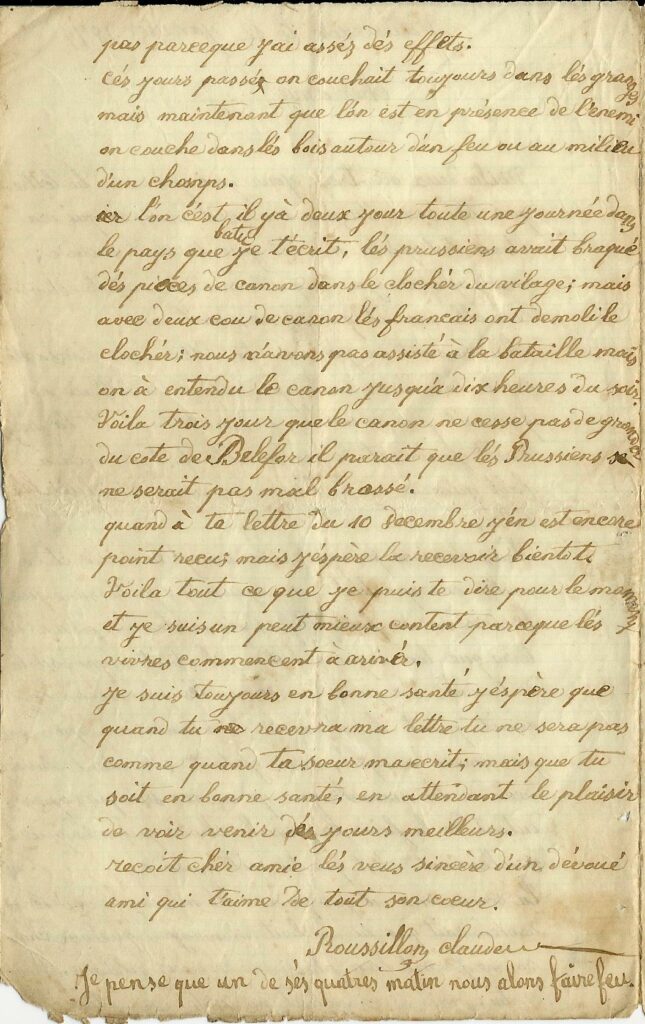 pas parceque j'ai assés dés effets.
cés jours passés on couchait toujours dans lés granges
mais maintenant que l'on est en présence de l'enemi
on couche dans lés bois autour d'un feu ou au milieu
d'un champs.
l'on c'est il yà deux jour toute une journée dans
batu
le pays que je t'écrit, lés prussiens avait braqué
dés pièces de canon dans le clochér du vilage; mais
avec deux cou de canon lés francais ont demoli le
clochér; nous n'avons pas assisté à la bataille mais
on à entendu le canon jusqu'a dix heures du soir.
Voila trois jour que le canon ne cesse pas de grondér
du cote de Belefor il parait que lés Prussiens
ne serait pas mal brossé.
quand à ta lettre du 10 decembre j'én est encore
point recu; mais j'éspère la recevoir bientot.
Voila tout ce que je puis te dire pour le moment
et je suis un peut mieux content parceque lés
vivres commencent à arivér.
je suis toujours en bonne santé j'éspère que
quand tu recevra ma lettre tu ne sera pas
comme quand ta soeur m'a ecrit; mais que tu
soit en bonne santé, en attendant le plaisir
de voir venir dés jours meilleurs.
recoit chér amie lés veus sincère d'un dévoué
ami qui t'aime de tout son coeur.
Roussillon claude
Je pense que un de sés quatres matin nous alons faire feu.